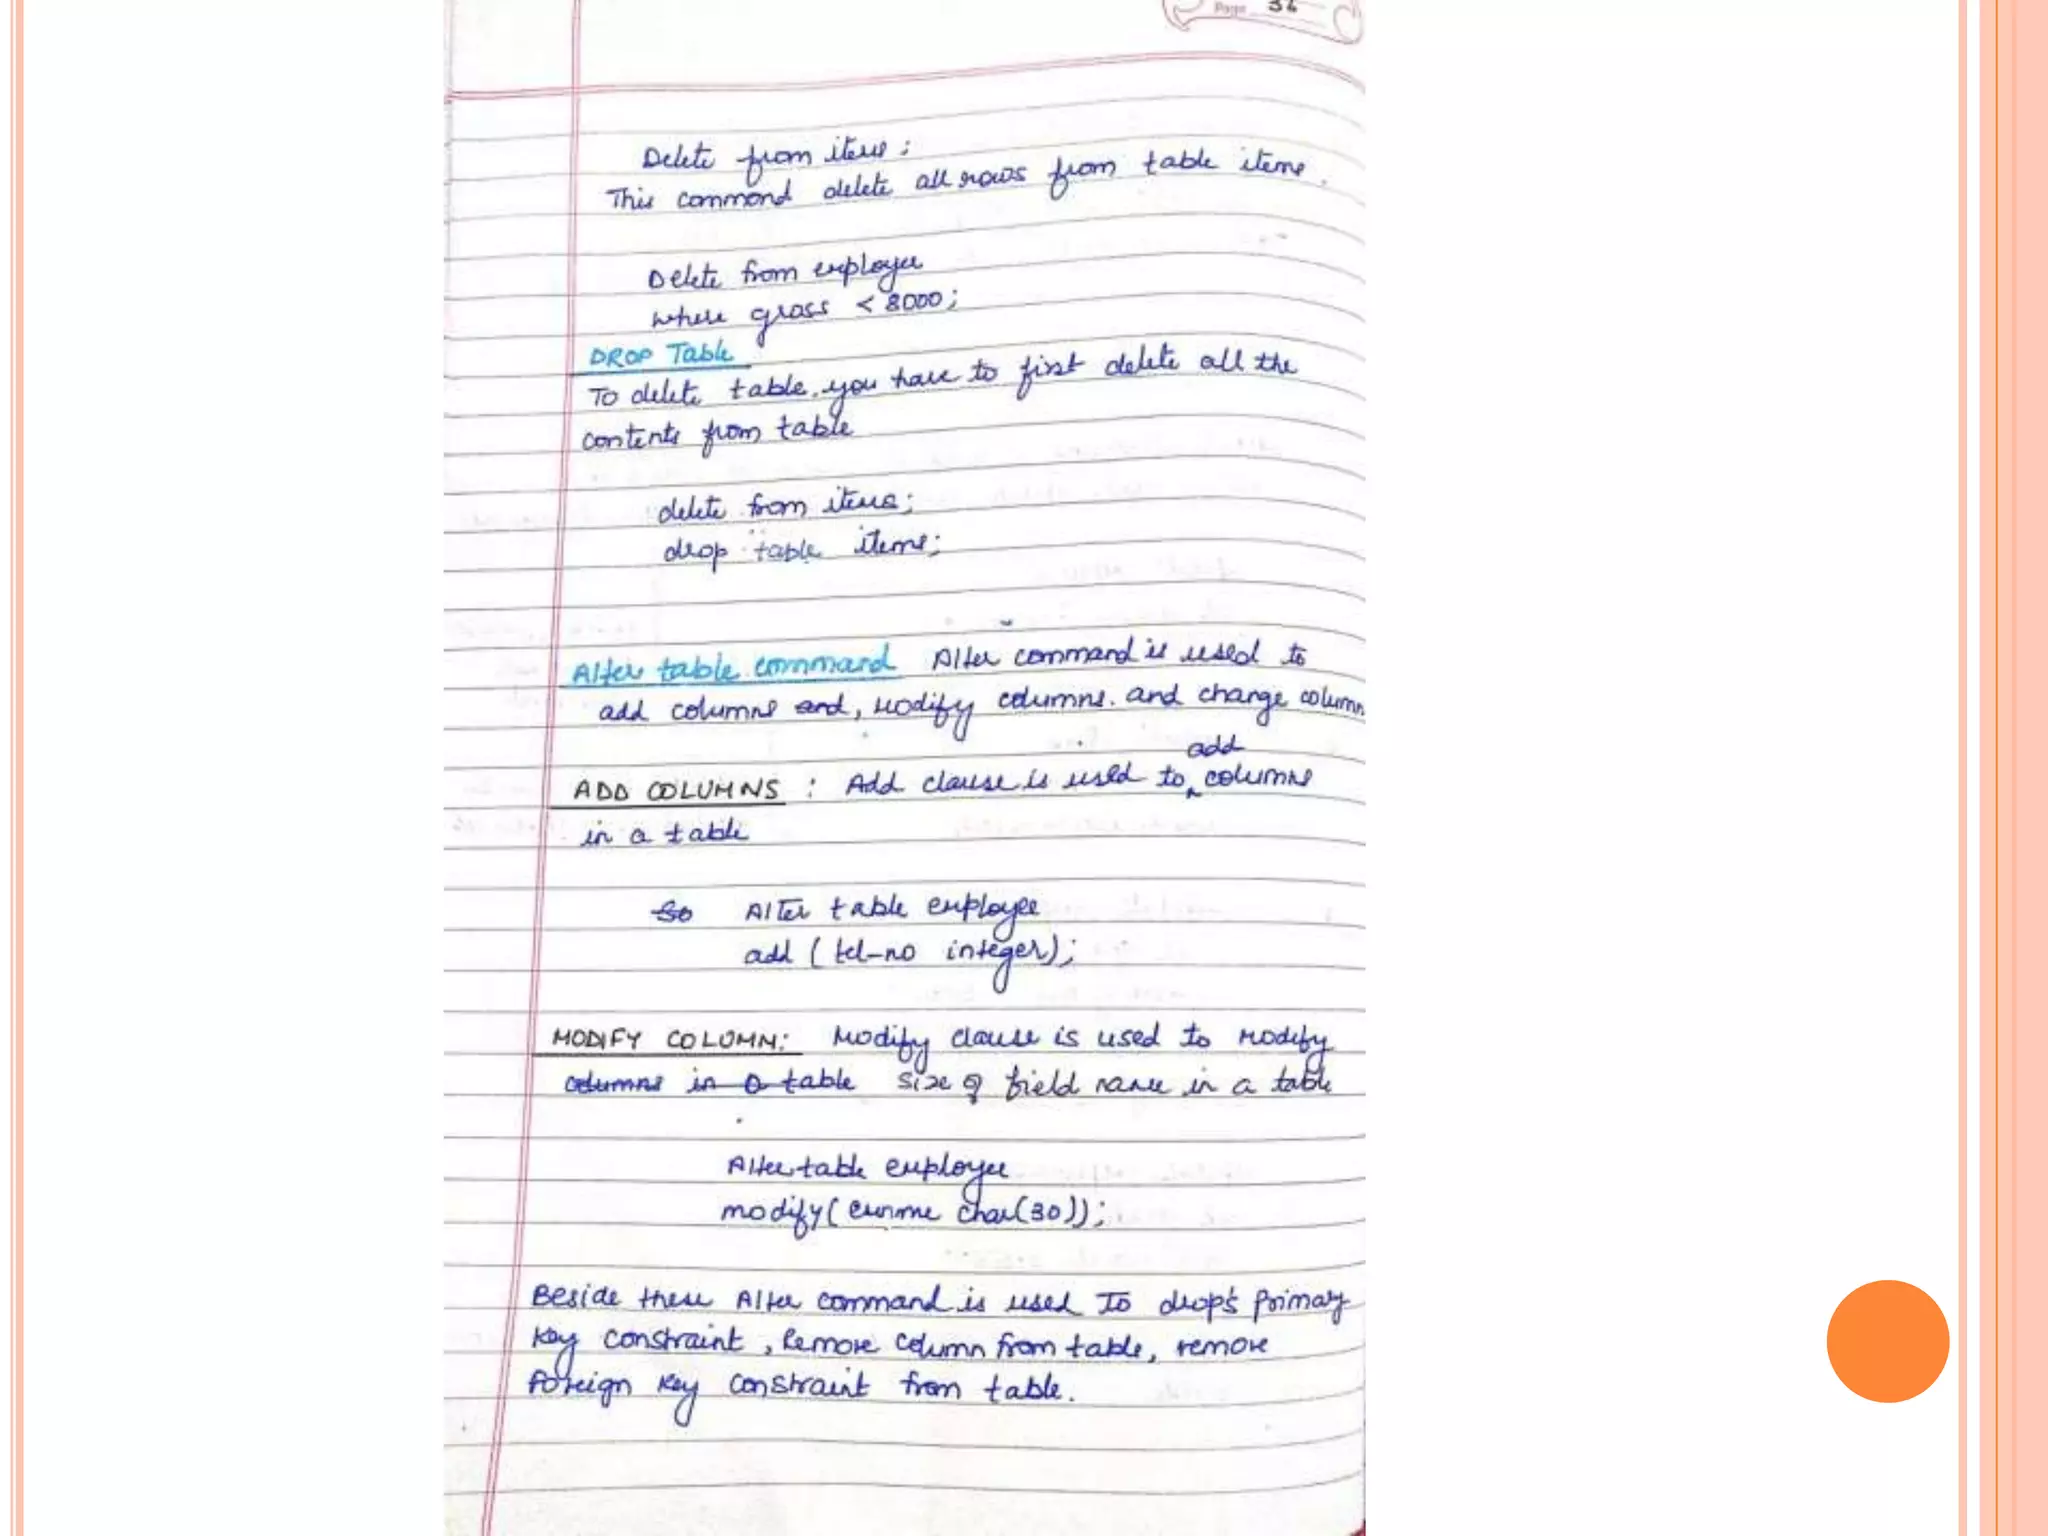 Page 36
Delete from items;
This command delete all rows from table items.
Delete from employee
where gross < 8000;
DROP Table
To delete table, you have to first delete all the
contents from table
delete from items;
drop table items;
Alter table command Alter command is used to
add columns and, modify columns. and change column
add
ADD COLUMNS : Add clause is used to columns
in a table
So Alter table employee
add ( tel-no integer);
MODIFY COLUMN: Modify clause is used to modify
columns in a table size of field name in a table
Alter table employee
modify( ename char(30));
Beside these Alter command is used To drops primary
key constraint, Remove column from table, remove
foreign key constraint from table.